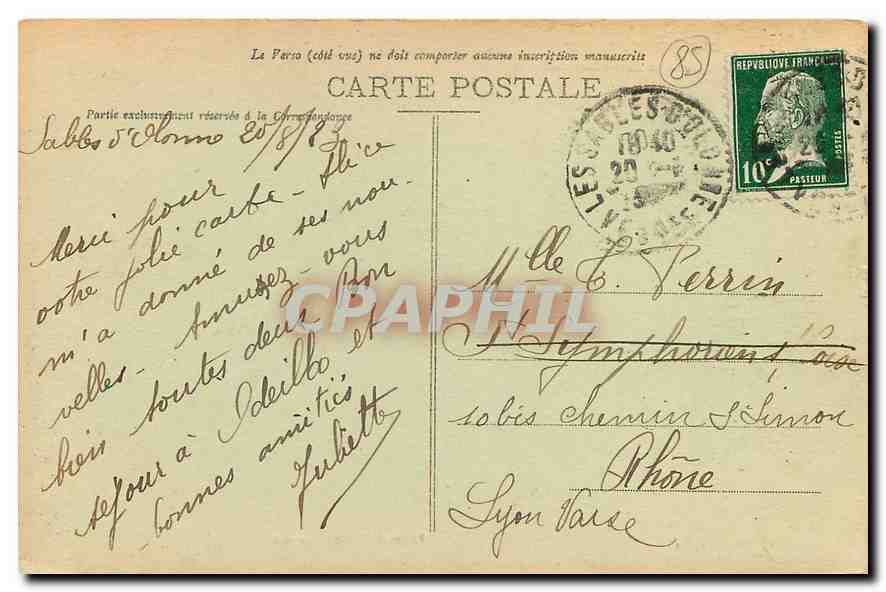 Le Verso (côté vue) ne doit comporter aucune inscription manuscrite
85
CARTE POSTALE
Partie exclusivement réservée à la Correspondance
REPVBLIQVE FRANÇAISE
10c
POSTES
PASTEUR
LES SABLES D'OLONNE
VENDEE
Sables d'Olonne 20/8/23
Merci pour
votre jolie carte - Alice
m'a donné de ses nou-
velles - Amusez-vous
bien toutes deux Bon
séjour à Odeillo et
bonnes amitiés
Juliette
Mlle C. Perrin
St Symphorien s/ Coise
10 bis chemin St Simon
Rhône
Lyon Vaise
CPAPHIL